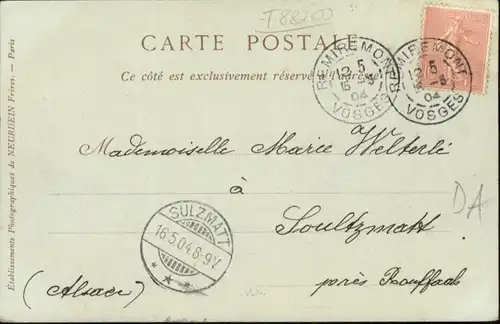 T88200
CARTE POSTALE
Ce côté est exclusivement réservé à l'adresse
REMIREMONT
12 5
5
04
VOSGES
REMIREMONT
12 5
5
04
VOSGES
Mademoiselle Marie Welterlé
à
Soultzmatt
près Rouffach
(Alsace)
SULZMATT
16.5.04.8-9V.
DA
Etablissements Photographiques de NEURDEIN Frères. — Paris